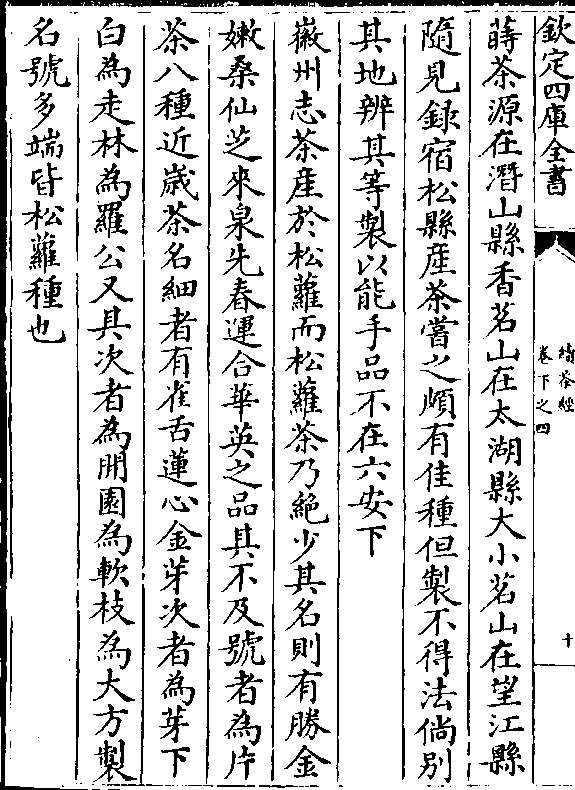 欽定四庫全書
續茶經
卷下之四
十
蒔茶源在潛山縣香茗山在太湖縣大小茗山在望江縣
隨見録宿松縣産茶嘗之頗有佳種但製不得法倘别
其地辨其等製以能手品不在六安下
徽州志茶産於松蘿而松蘿茶乃絶少其名則有勝金
嫩桑仙芝來泉先春運合華英之品其不及號者為片
茶八種近歲茶名細者有雀舌蓮心金芽次者為芽下
白為走林為羅公又其次者為開園為軟枝為大方製
名號多端皆松蘿種也